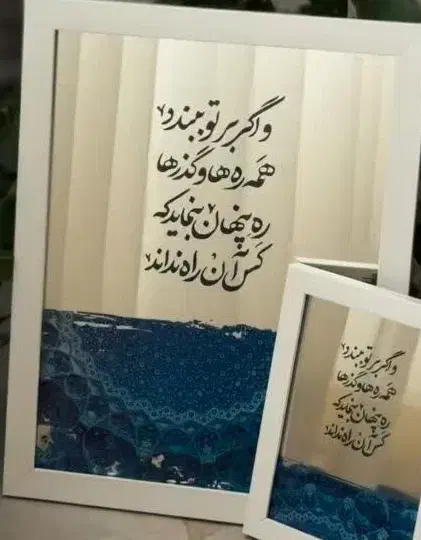 و اگر بر تو ببندد
همه ره ها و گذرها
ره پنهان بنماید که
کس آن راه نداند
و اگر بر تو ببندد
همه ره ها و گذرها
ره پنهان بنماید که
کس آن راه نداند